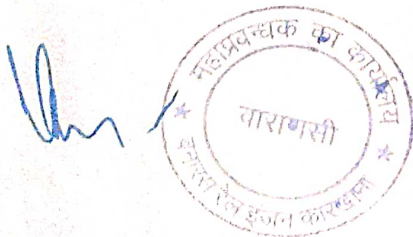 महाप्रबन्धक का कार्यालय
वाराणसी
बनारस रेल इंजन कारखाना